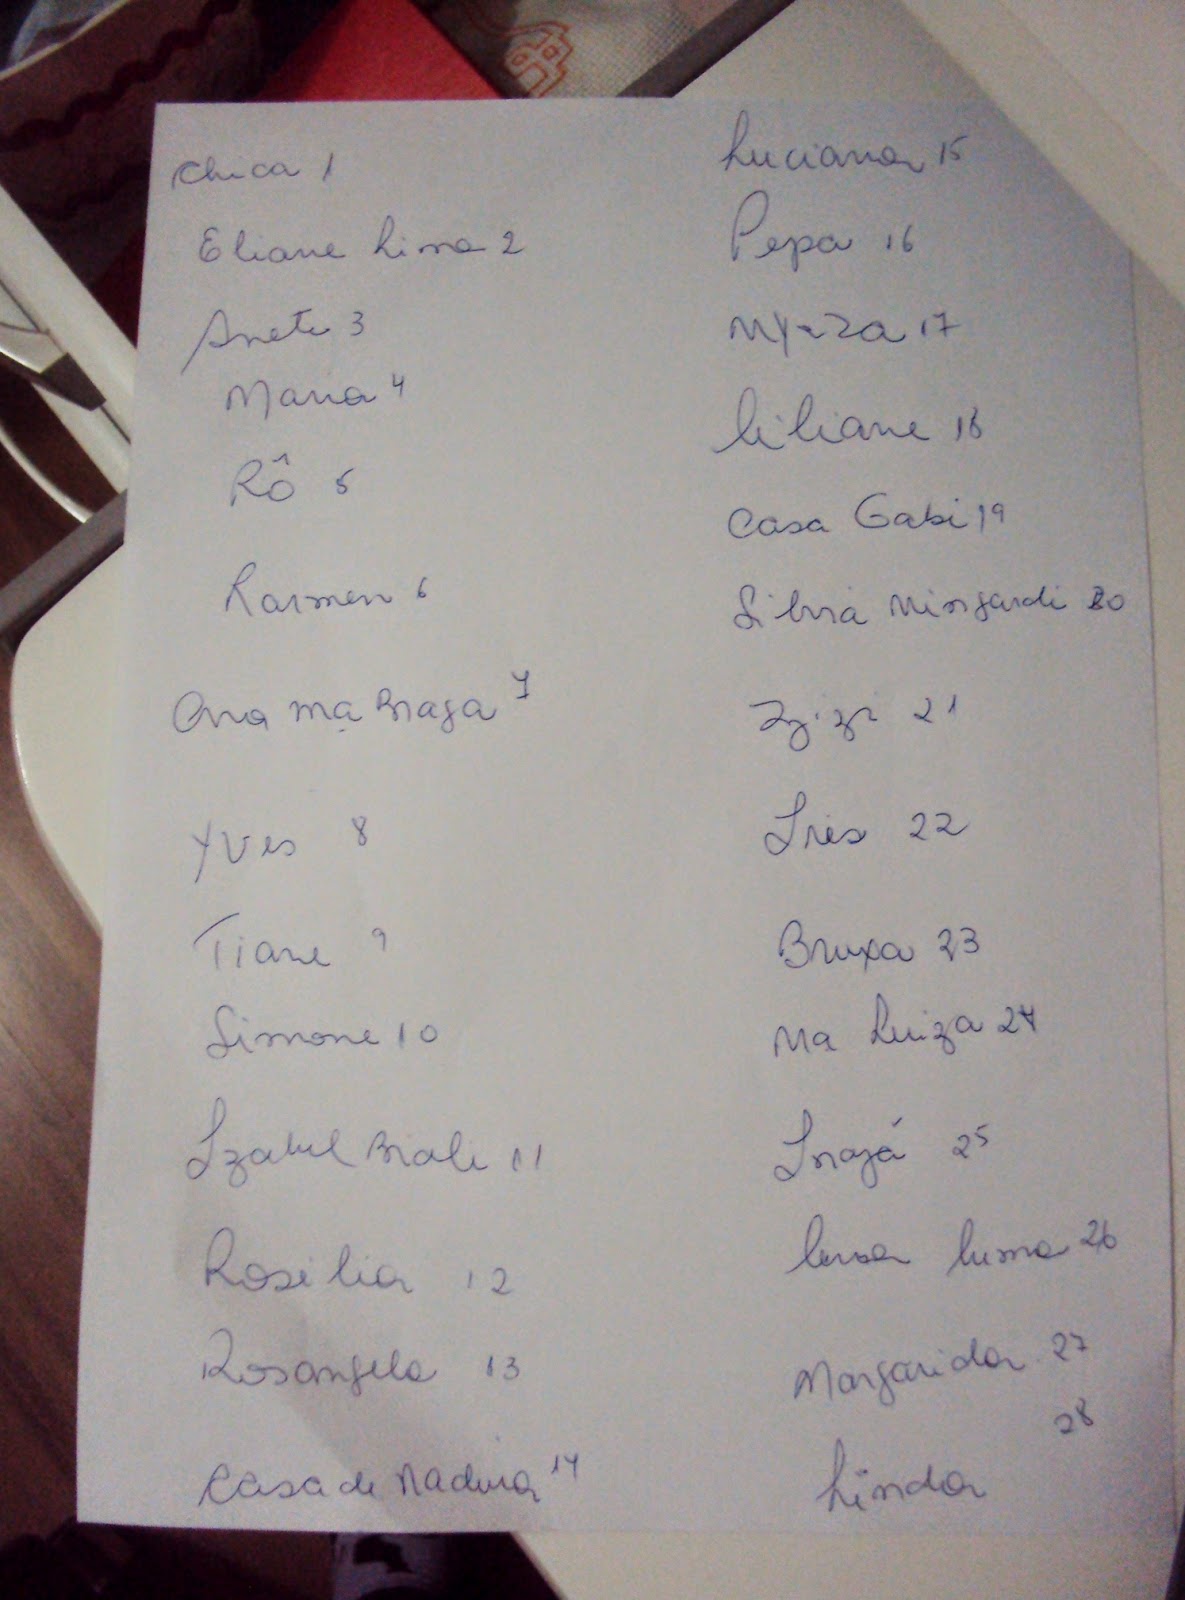 Chica 1
Eliane Lima 2
Anete 3
Maria 4
Rô 5
Karmen 6
Ana Ma Braga 7
Yves 8
Tiane 9
Simone 10
Izabel Biale 11
Rosélia 12
Rosangela 13
Casa de Madeira 14
Luciana 15
Pepa 16
Myrza 17
Liliane 18
Casa Gabi 19
Silvia Mingardi 20
Izizi 21
Ires 22
Bruxa 23
Ma Luiza 24
Inajá 25
Luma 26
Margarida 27
28
Linda